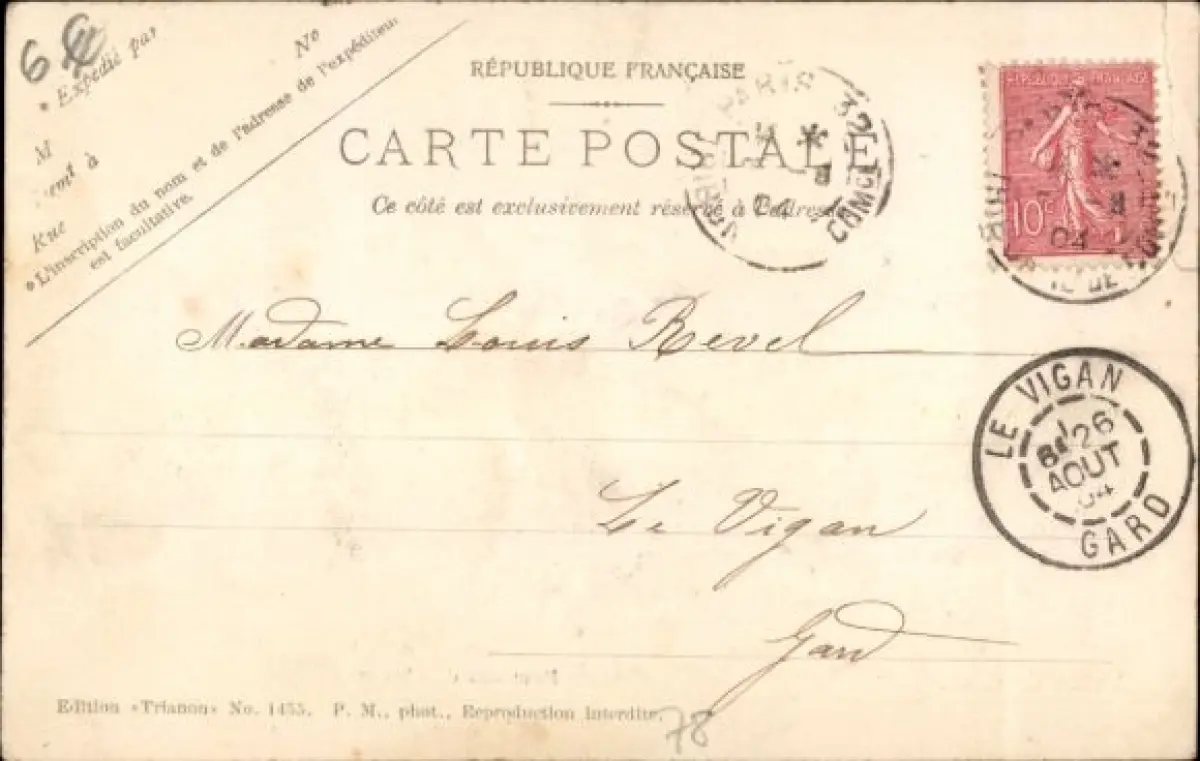 6 €
* Expédié par
M
Rue
No
*L'inscription du nom et de l'adresse de l'expéditeur
est facultative.
RÉPUBLIQUE FRANÇAISE
CARTE POSTALE
Ce côté est exclusivement réservé à l'adresse
PARIS 32
04
RÉPUBLIQUE FRANÇAISE
10c
04
Madame Louis Revel
LE VIGAN
26
AOUT
04
GARD
Le Vigan
Gard
Edition «Trianon» No. 1455. P. M., phot., Reproduction interdite.
78